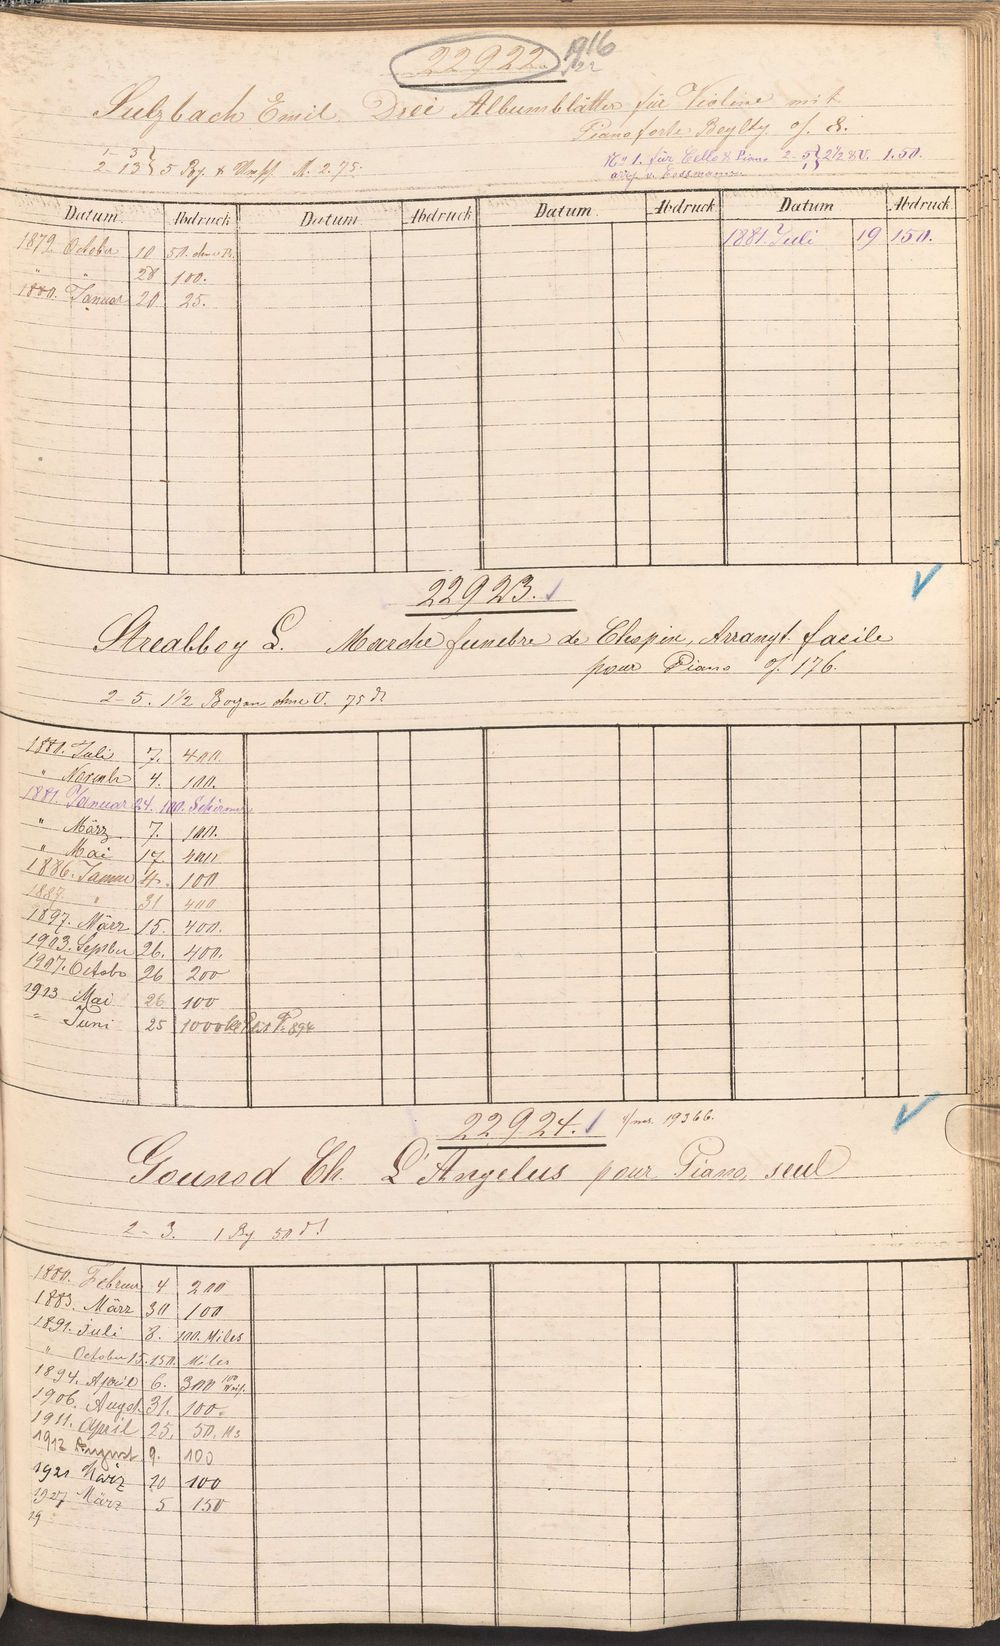 22922. 1916
Sulzbach Emil. Drei Albumblätter für Violine mit
Pianoforte Begltg. op. 8.
1- 3
2- 13 } 5 Bg. & Umschl. M. 2.75.
No 1. für Cello & Piano 2-5 } 2½ & U. 1.50.
arrg. v. Cossmann.
Datum. Abdruck Datum. Abdruck Datum. Abdruck Datum Abdruck
1879 October 10 50. ohne Pr. 1881. Juli 19 150.
" " 28 100.
1880. Januar 20 25.
22923.
Streabbog L. Marche funebre de Chopin, Arrangt. facile
pour Piano op. 176.
2-5. 1½ Bogen ohne U. 75 d
1880. Juli 7. 400.
" Novembr 4. 100.
1881. Januar 24. 100. Schirmer
" März 7. 100.
" Mai 17. 400
1886. Januar 4. 100
1887 " 31 400
1897. März 15. 400.
1903. Septber 26. 400.
1907. Octob 26 200
1913 Mai 26 100
" Juni 25 1000
22924. 19366.
Gounod Ch. L'Angelus pour Piano, seul
2-3. 1 Bg 50 d
1880. Februar 4 200
1883. März 30 100
1891. Juli 8. 100. Miles
" October 15. 150. Miles
1894. April 6. 300
1906. Augst. 31. 100.
1911. April 25. 50.
1912 August 9. 100
1921 März 10 100
1927 März 5 150
19